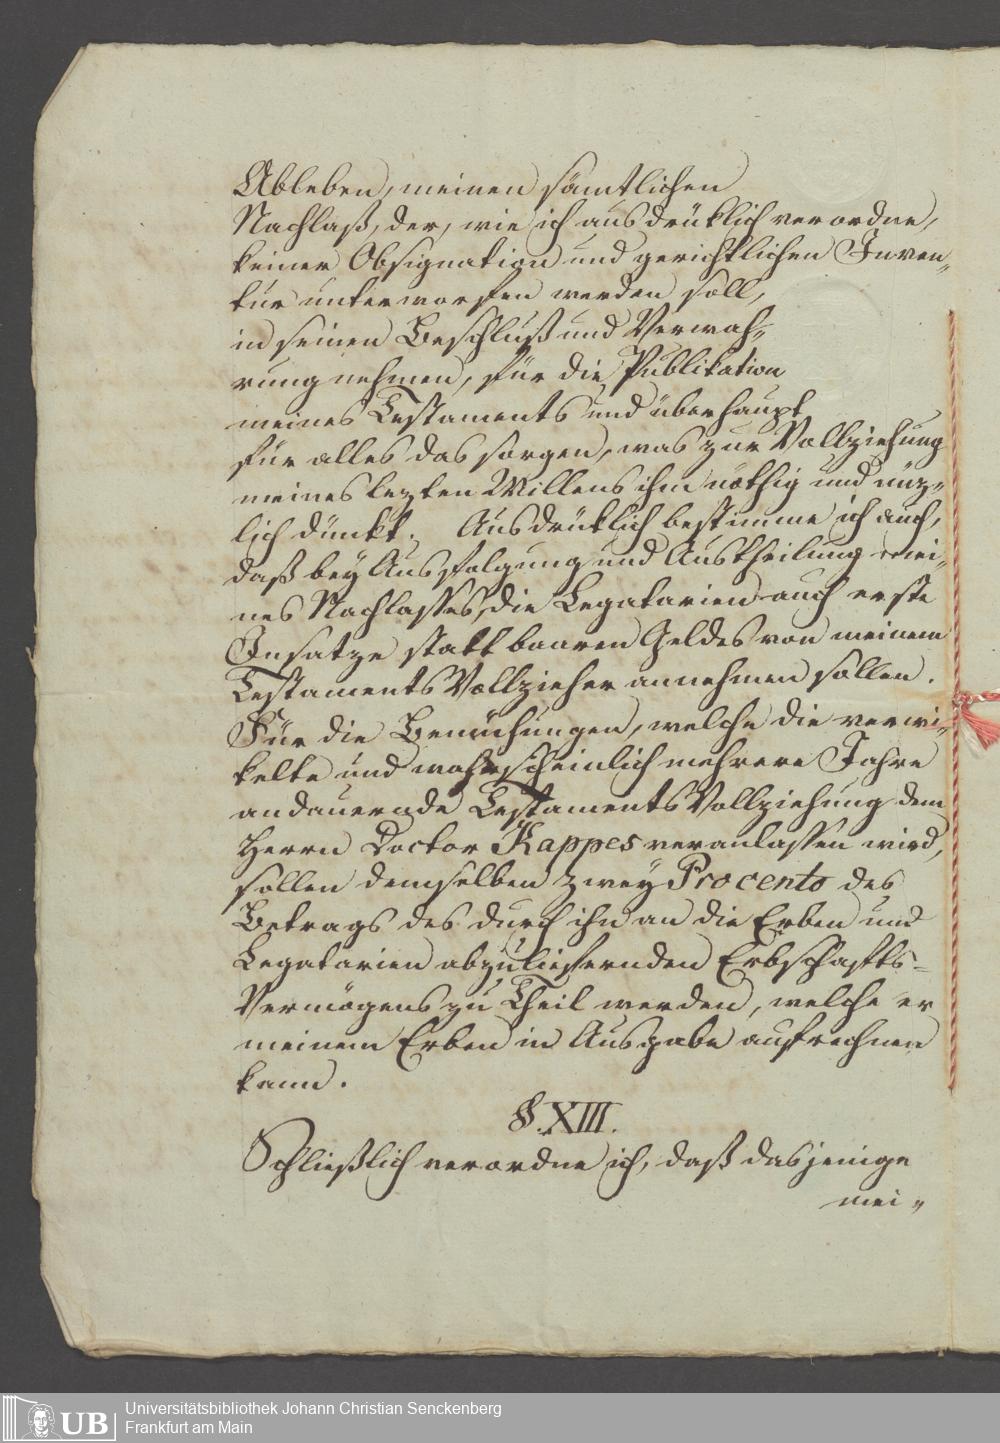 Ableben, meinen sämtlichen
Nachlaß, der, wie ich ausdrüklich verordne,
keiner Obsignation und gerichtlichen Inven„
tur unterworfen werden soll,
in seinen Beschluß und Verwah„
rung nehmen, für die Publikation
meines Testaments und überhaupt
für alles das sorgen, was zur Vollziehung
meines lezten Willens ihm nöthig und nüz„
lich dünkt. Ausdrüklich bestimme ich auch,
daß bey Ausfolgung und Austheilung mei„
nes Nachlasses, die Legatarien auch erste
Insatze statt baaren Geldes von meinem
Testaments Vollzieher annehmen sollen.
Für die Bemühungen, welche die verwi„
kelte und wahrscheinlich mehrere Jahre
andauernde Testaments Vollziehung dem
Herrn Doctor Kappes veranlassen wird,
sollen demselben zwey Procento des
Betrags des durch ihn an die Erben und
Legatarien abzuliefernden Erbschafts-
Vermögens zu Theil werden, welche er
meinem Erben in Ausgabe aufrechnen
kann.
§. XIII.
Schließlich verordne ich, daß dasjenige
mei„
UB
Universitätsbibliothek Johann Christian Senckenberg
Frankfurt am Main